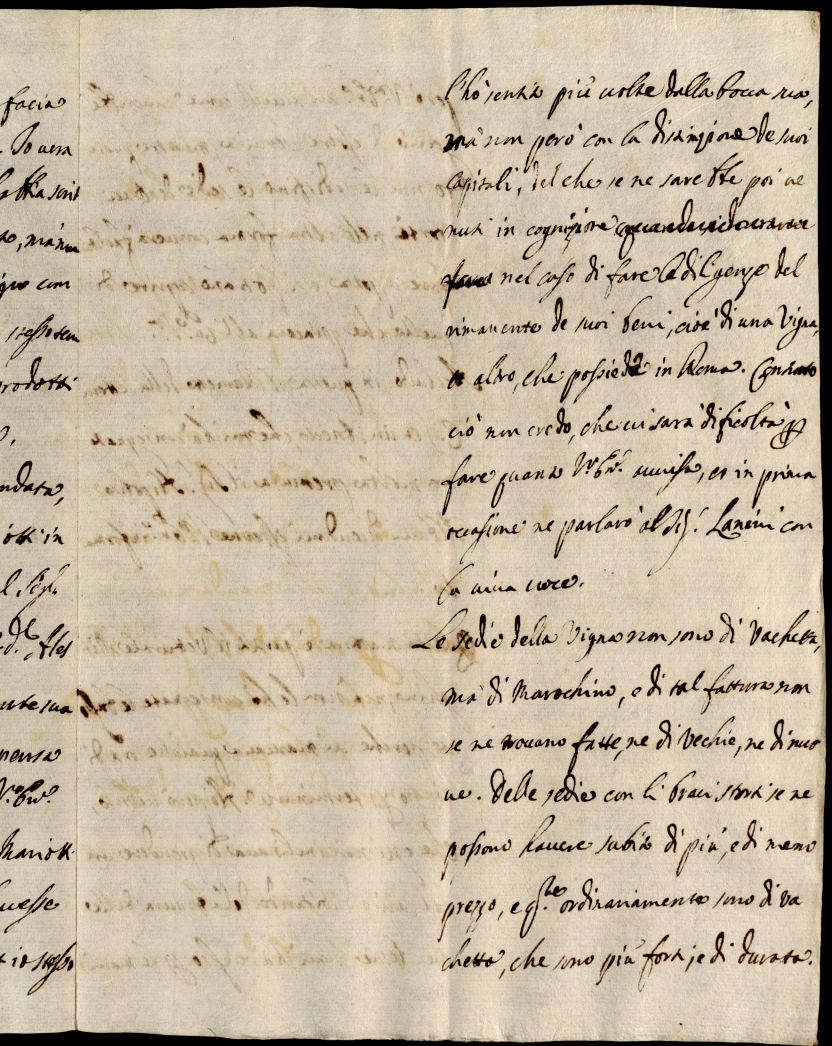 facia
Io vera
, mà non
stesso tem
prodotti
ndata,
in
ute sua
pensa
Mariott
uesse
io stesso
l'hò sentito più uolte dalla bocca sua,
mà non però con la distinzione de suoi
Capitali, del che se ne sarebbe poi ue
nuti in cognizione
nel caso di fare le diligenze del
rimanente de suoi beni, cioè di una Vigna,
altro, che possiede in Roma. Contutto
ciò non credo, che ui sarà dificoltà
fare quanto V. Em. auuisa, et in prima
occasione ne parlarò al Sig.r Lanéni con
la uiua uoce.
Le sedie della Vigna non sono di Vachetta,
mà di Marochino, e di tal fattura non
se ne trouano fatte, ne di Vechie, ne di nuo
ue. Delle sedie con li braci storti se ne
possono hauere subito di più, e di meno
prezzo, e q.ste ordinariamente sono di va
chetta, che sono più forti, e di durata.